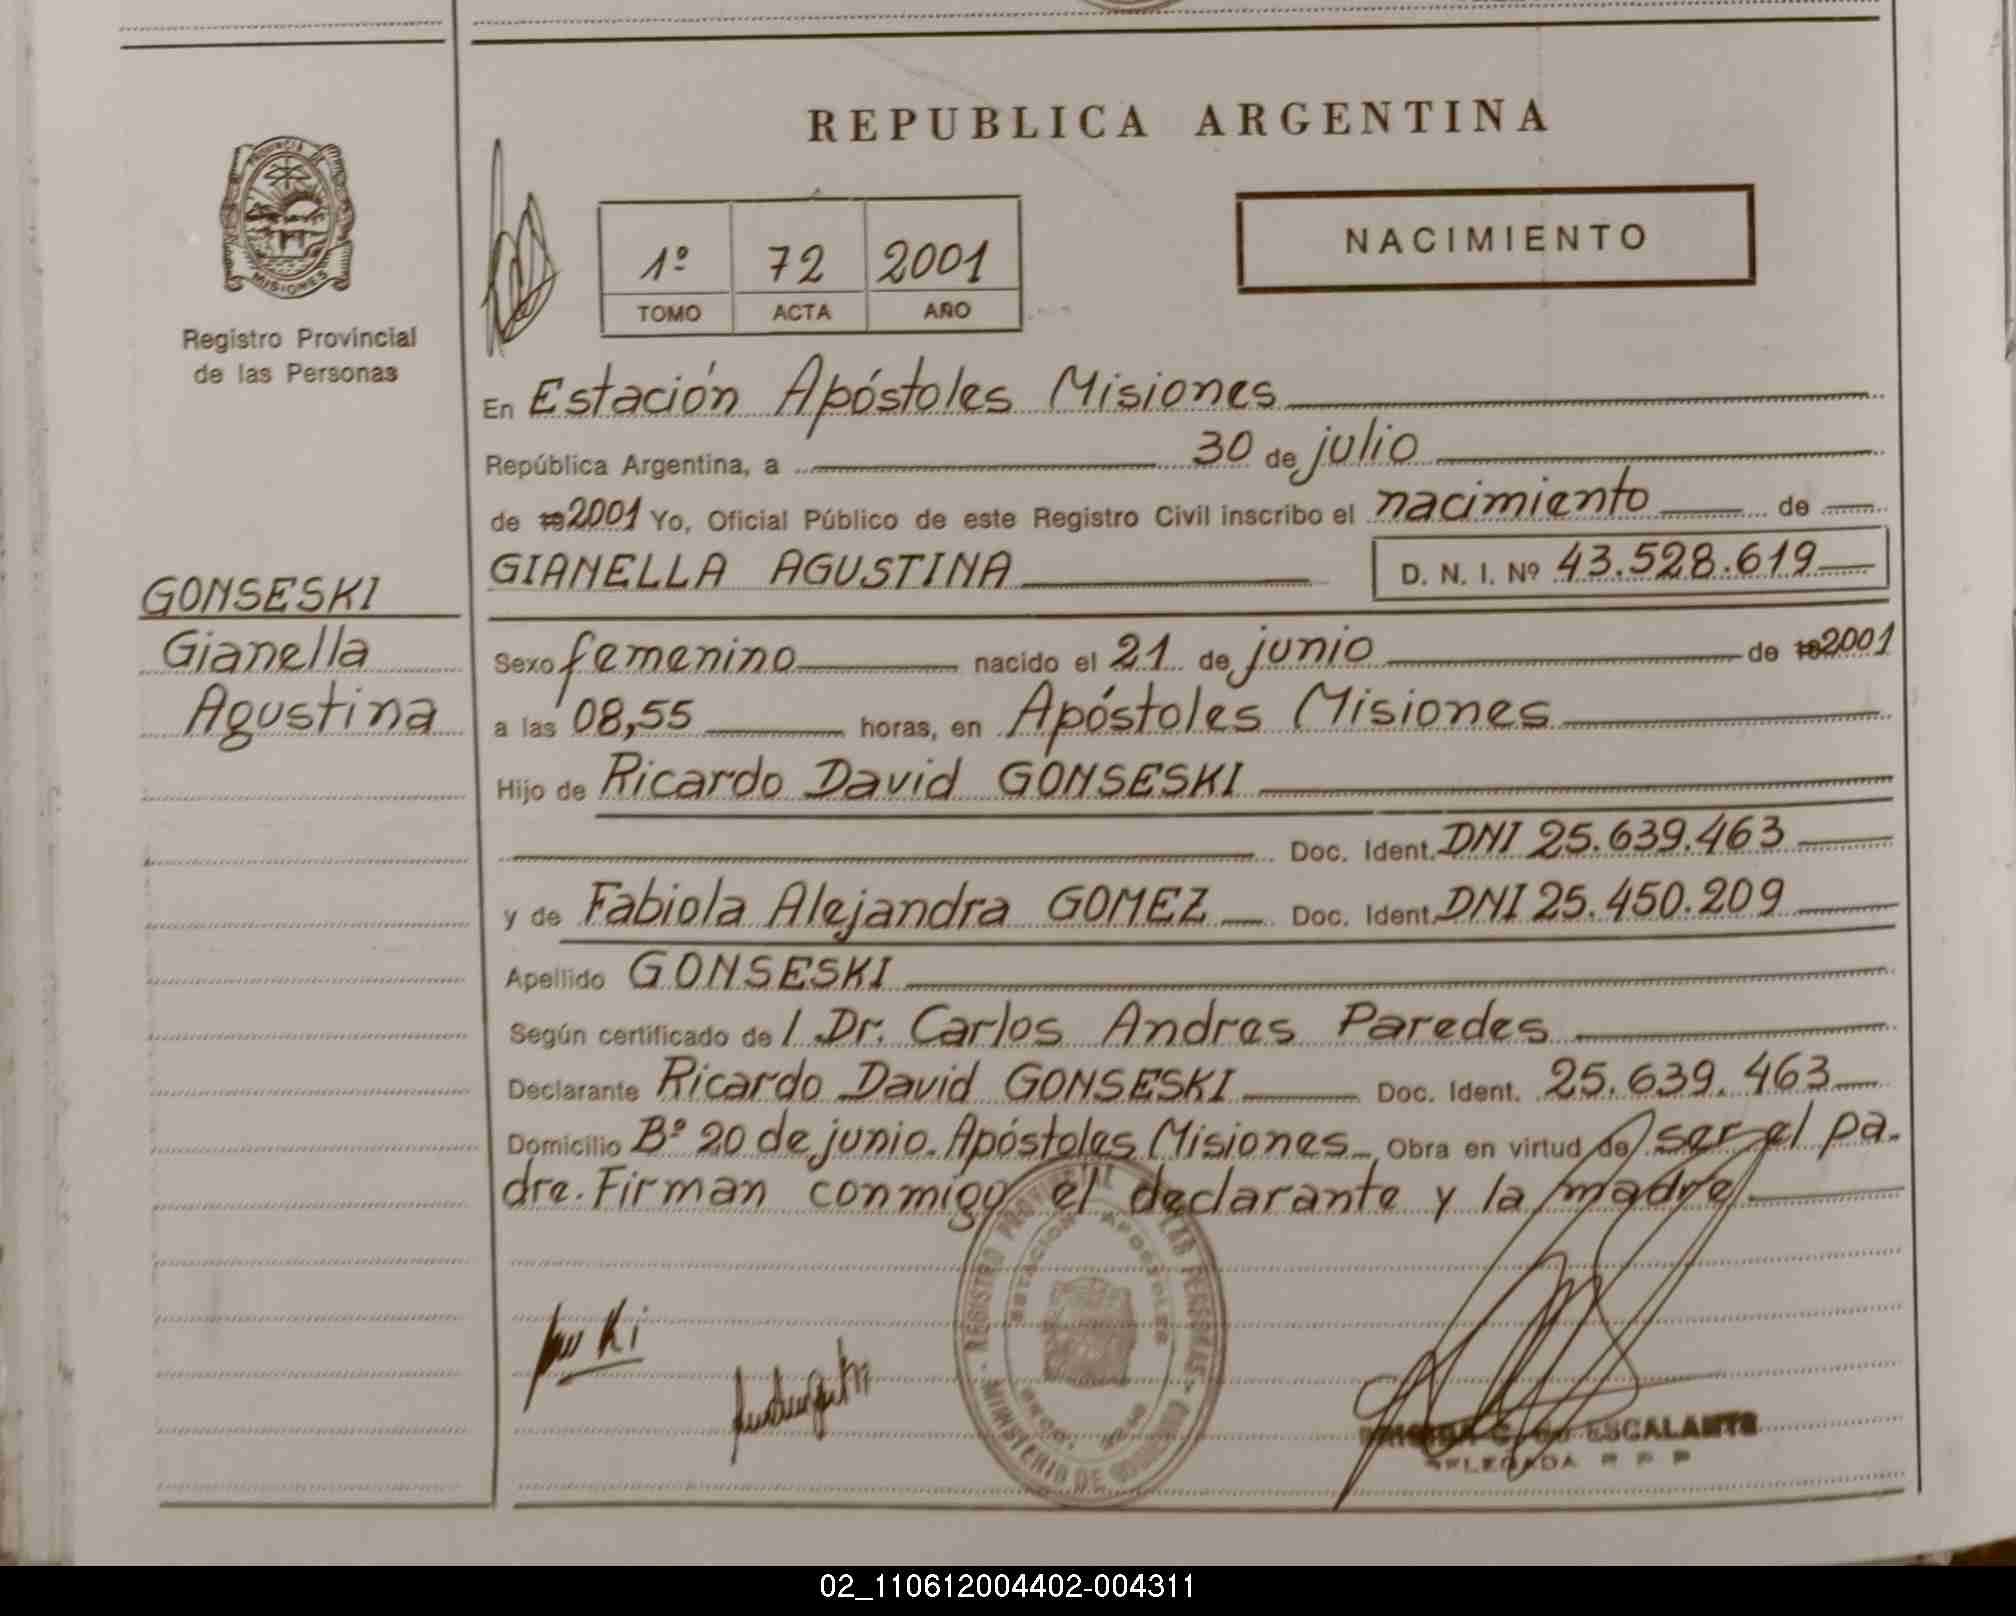 REPUBLICA ARGENTINA
PROVINCIA DE
MISIONES
Registro Provincial
de las Personas
1º 72 2001
TOMO ACTA AÑO
NACIMIENTO
En Estación Apóstoles Misiones
República Argentina, a 30 de julio
de 2001 Yo, Oficial Público de este Registro Civil inscribo el nacimiento de
GIANELLA AGUSTINA D. N. I. Nº 43.528.619
GONSESKI
Gianella
Agustina
Sexo femenino nacido el 21 de junio de 2001
a las 08,55 horas, en Apóstoles Misiones
Hijo de Ricardo David GONSESKI
Doc. Ident. DNI 25.639.463
y de Fabiola Alejandra GOMEZ Doc. Ident. DNI 25.450.209
Apellido GONSESKI
Según certificado de / Dr. Carlos Andres Paredes
Declarante Ricardo David GONSESKI Doc. Ident. 25.639.463
Domicilio Bº 20 de junio. Apóstoles Misiones Obra en virtud de ser el pa-
dre. Firman conmigo el declarante y la madre
REGISTRO PROVINCIAL DE LAS PERSONAS
ESTACION APOSTOLES
MINISTERIO DE GOBIERNO
ESCALANTE
DELEGADA R P P
02_110612004402-004311